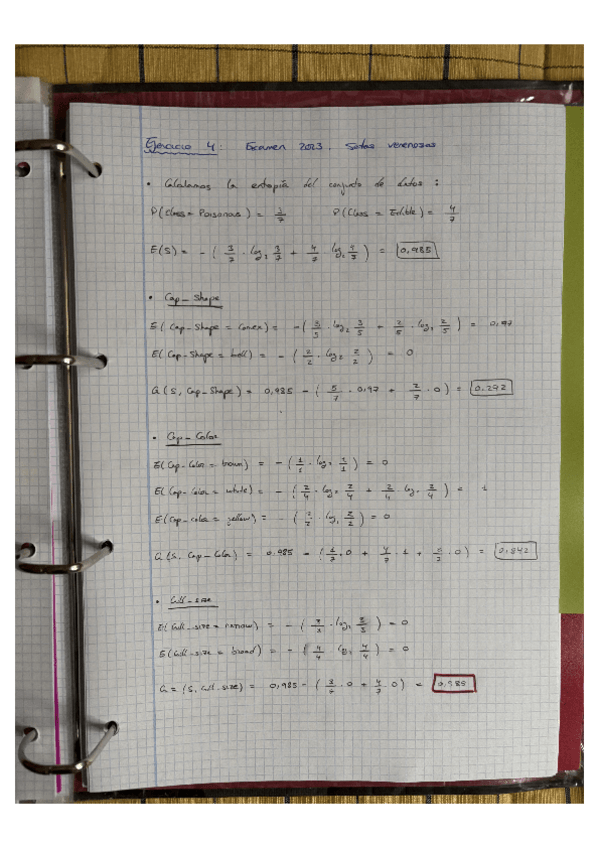 Ejercicio 4: Examen 2023. Setas venenosas
• Calculamos la entropía del conjunto de datos:
P(Class = Poisonous) = 3/7 P(Class = Edible) = 4/7
E(S) = - (3/7 · log₂ 3/7 + 4/7 · log₂ 4/7) = 0,985
• Cap_Shape
E(Cap_Shape = convex) = - (3/5 · log₂ 3/5 + 2/5 · log₂ 2/5) = 0,97
E(Cap_Shape = bell) = - (2/2 · log₂ 2/2) = 0
G(S, Cap_Shape) = 0,985 - (5/7 · 0,97 + 2/7 · 0) = 0,292
• Cap_Color
E(Cap_Color = brown) = - (1/1 · log₂ 1/1) = 0
E(Cap_Color = white) = - (2/4 · log₂ 2/4 + 2/4 log₂ 2/4) = 1
E(Cap_color = yellow) = - (2/2 · log₂ 2/2) = 0
G(S, Cap_Color) = 0.985 - (1/7 · 0 + 4/7 · 1 + 2/7 · 0) =
• Gill_size
E(Gill_size = narrow) = - (3/3 · log₂ 3/3) = 0
E(Gill_size = broad) = - (4/4 · log₂ 4/4) = 0
G = (S, Gill_size) = 0,985 - (3/7 · 0 + 4/7 · 0) = 0,985